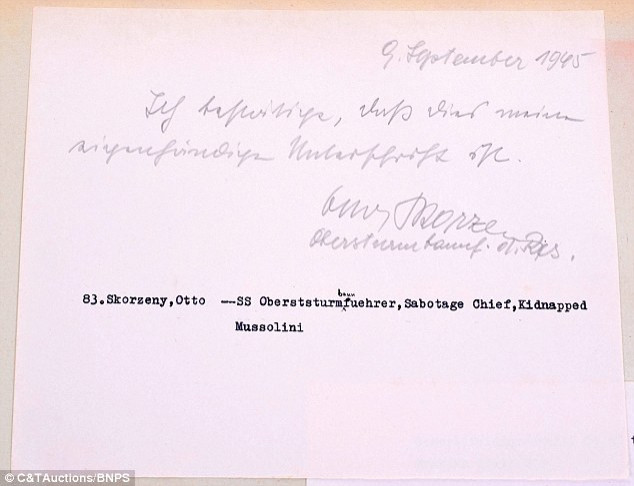 9. September 1945
Ich bestätige, daß dies meine
eigenhändige Unterschrift ist.
Otto Skorzeny
Obersturmbannf. d. Res.
83.Skorzeny,Otto —SS Oberststurmfuehrer,Sabotage Chief,Kidnapped
bann
Mussolini
© C&TAuctions/BNPS